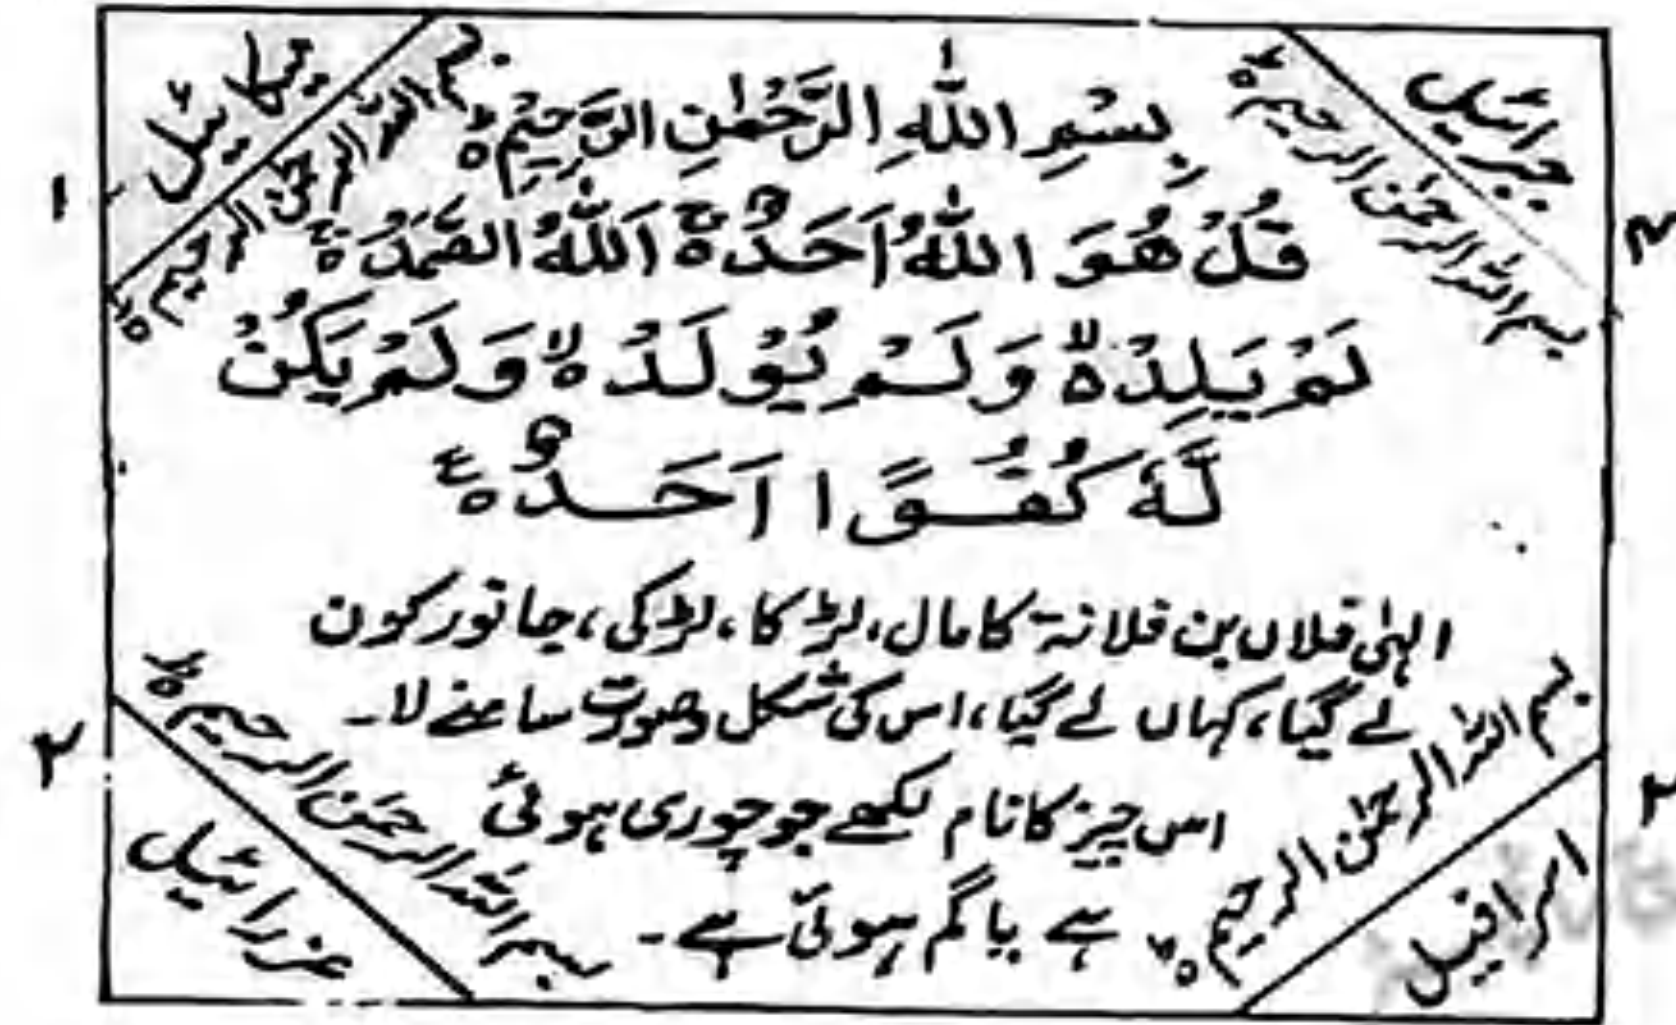 میکائیل
جبرائیل
بسم اللہ الرحمٰن الرحیم ؕ۝
بسم اللہ الرحمٰن الرحیم ؕ۝
۱
بِسْمِ اللّٰهِ الرَّحْمٰنِ الرَّحِيْمِ ؕ۝
قُلْ هُوَ اللّٰهُ اَحَدٌ ۚ۝ اَللّٰهُ الصَّمَدُ ۚ۝
لَمْ يَلِدْ ۙ۝ وَلَمْ يُوْلَدْ ۙ۝ وَلَمْ يَكُنْ
لَّهٗ كُفُوًا اَحَدٌ ۝ع
الہٰی فلاں بن فلانۃ کا مال، لڑکا، لڑکی، جانور کون
لے گیا، کہاں لے گیا، اس کی شکل وصورت سامنے لا۔
اس چیز کا نام لکھے جو چوری ہوئی
ہے یا گم ہوئی ہے۔
بسم اللہ الرحمٰن الرحیم ؕ۝
بسم اللہ الرحمٰن الرحیم ؕ۝
۲
۲
عزرائیل
اسرافیل